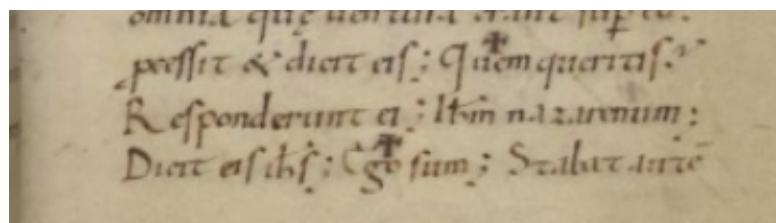 omnia quę uentura erant sup eū.
pcessit & dicit eis; Quem queritis?
Responderunt ei; Ihm nazarenum;
Dicit eis ihs; Ego sum; Stabat autē